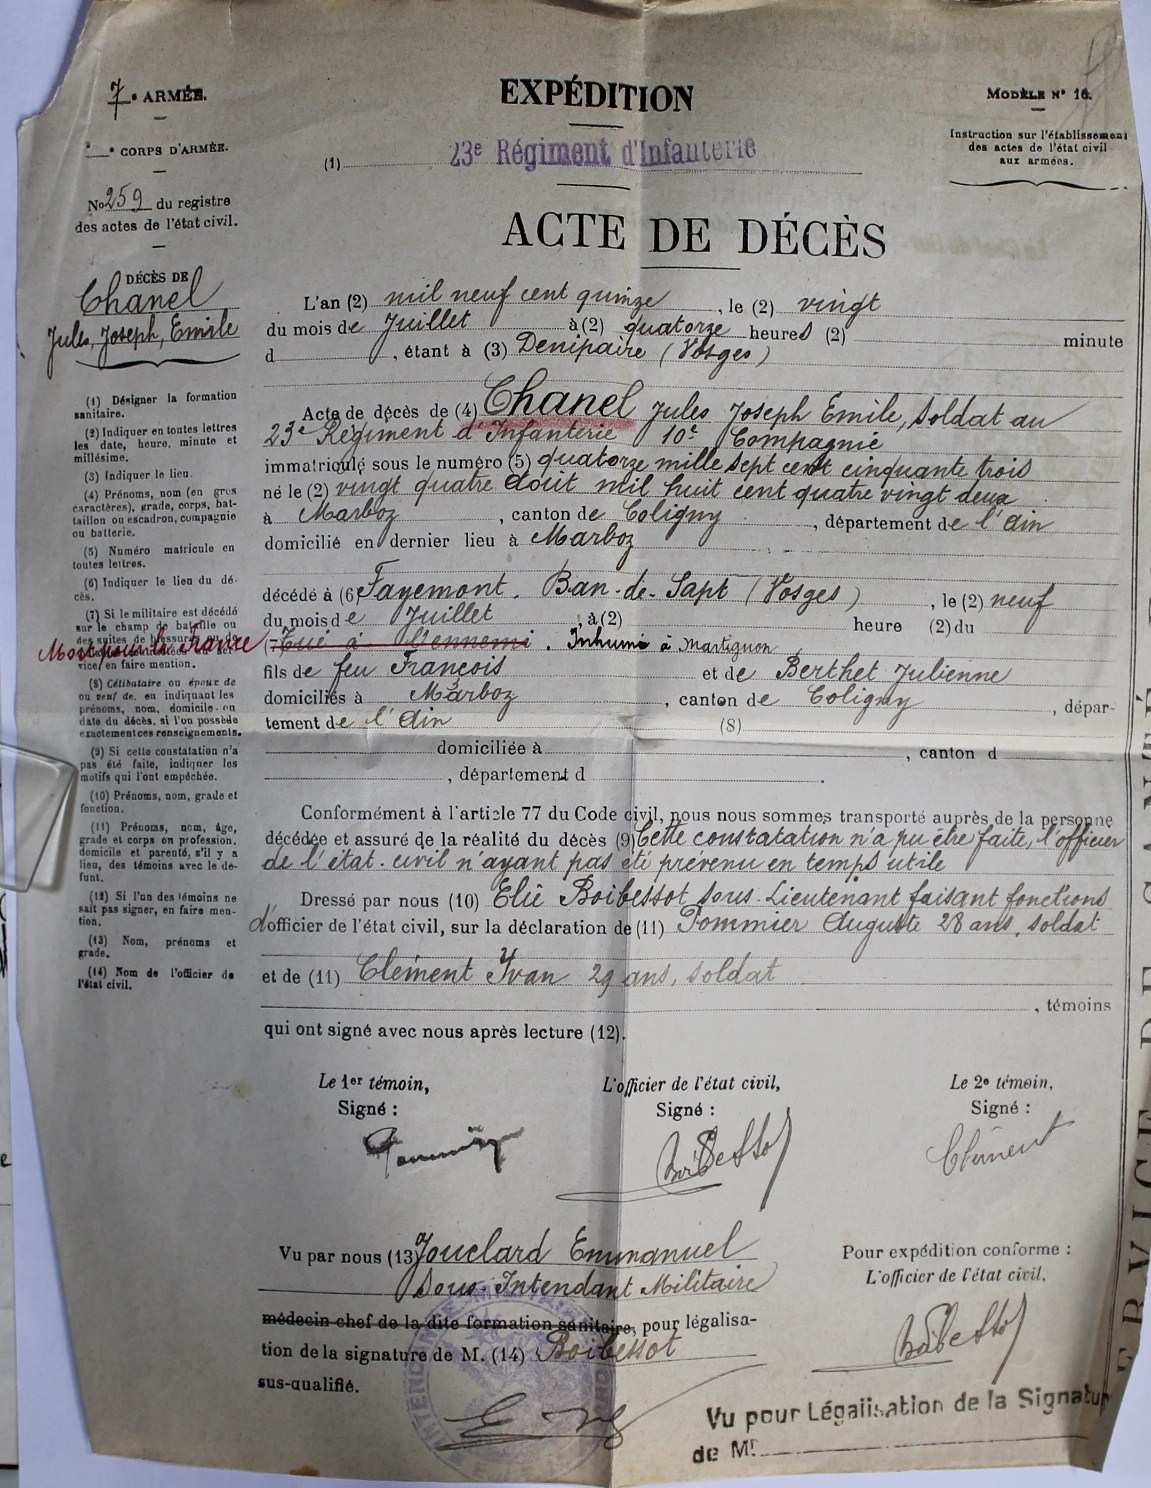 7e ARMÉE.
e CORPS D'ARMÉE.
No 259 du registre
des actes de l'état civil.
DÉCÈS DE
Chanel
Jules, Joseph, Emile
(1) Désigner la formation
sanitaire.
(2) Indiquer en toutes lettres
les date, heure, minute et
millésime.
(3) Indiquer le lieu.
(4) Prénoms, nom (en gros
caractères), grade, corps, bat-
taillon ou escadron, compagnie
ou batterie.
(5) Numéro matricule en
toutes lettres.
(6) Indiquer le lieu du dé-
cès.
(7) Si le militaire est décédé
sur le champ de bataille ou
des suites de blessures
Mort pour la France
vice, en faire mention.
(8) Célibataire ou époux de
ou veuf de, en indiquant les
prénoms, nom, domicile ou
date du décès, si l'on possède
exactement ces renseignements.
(9) Si cette constatation n'a
pas été faite, indiquer les
motifs qui l'ont empêchée.
(10) Prénoms, nom, grade et
fonction.
(11) Prénoms, nom, âge,
grade et corps ou profession,
domicile et parenté, s'il y a
lieu, des témoins avec le dé-
funt.
(12) Si l'un des témoins ne
sait pas signer, en faire men-
tion.
(13) Nom, prénoms et
grade.
(14) Nom de l'officier de
l'état civil.
EXPÉDITION
(1) 23e Régiment d'Infanterie
MODÈLE N° 16.
Instruction sur l'établissement
des actes de l'état civil
aux armées.
ACTE DE DÉCÈS
L'an (2) mil neuf cent quinze, le (2) vingt
du mois de Juillet à (2) quatorze heures (2) minute
d , étant à (3) Denipaire (Vosges)
Acte de décès de (4) Chanel Jules Joseph Emile, soldat au
23e Régiment d'Infanterie 10e Compagnie
immatriculé sous le numéro (5) quatorze mille sept cent cinquante trois
né le (2) vingt quatre août mil huit cent quatre vingt deux
à Marboz, canton de Coligny, département de l'ain
domicilié en dernier lieu à Marboz
décédé à (6 Fayemont. Ban-de-Sapt (Vosges), le (2) neuf
du mois de Juillet, à (2) heure (2) du
Tué à l'ennemi. Inhumé à Martignon
fils de feu François et de Berthet Julienne
domiciliés à Marboz, canton de Coligny, dépar-
tement de l'ain (8)
domiciliée à , canton d
, département d .
Conformément à l'article 77 du Code civil, nous nous sommes transporté auprès de la personne
décédée et assuré de la réalité du décès (9) Cette constatation n'a pu être faite, l'officier
de l'état-civil n'ayant pas été prévenu en temps utile
Dressé par nous (10) Elie Boibessot sous-Lieutenant faisant fonctions
d'officier de l'état civil, sur la déclaration de (11) Pommier Auguste 28 ans, soldat
et de (11) Clément Yvan 29 ans, soldat
, témoins
qui ont signé avec nous après lecture (12).
Le 1er témoin,
Signé :
Pommier
L'officier de l'état civil,
Signé :
Boibessot
Le 2e témoin,
Signé :
Clément
Vu par nous (13) Jouclard Emmanuel
Sous-Intendant Militaire
médecin chef de la dite formation sanitaire, pour légalisa-
tion de la signature de M. (14) Boibessot
sus-qualifié.
Pour expédition conforme :
L'officier de l'état civil,
Boibessot
Vu pour Légalisation de la Signatur
de Mr